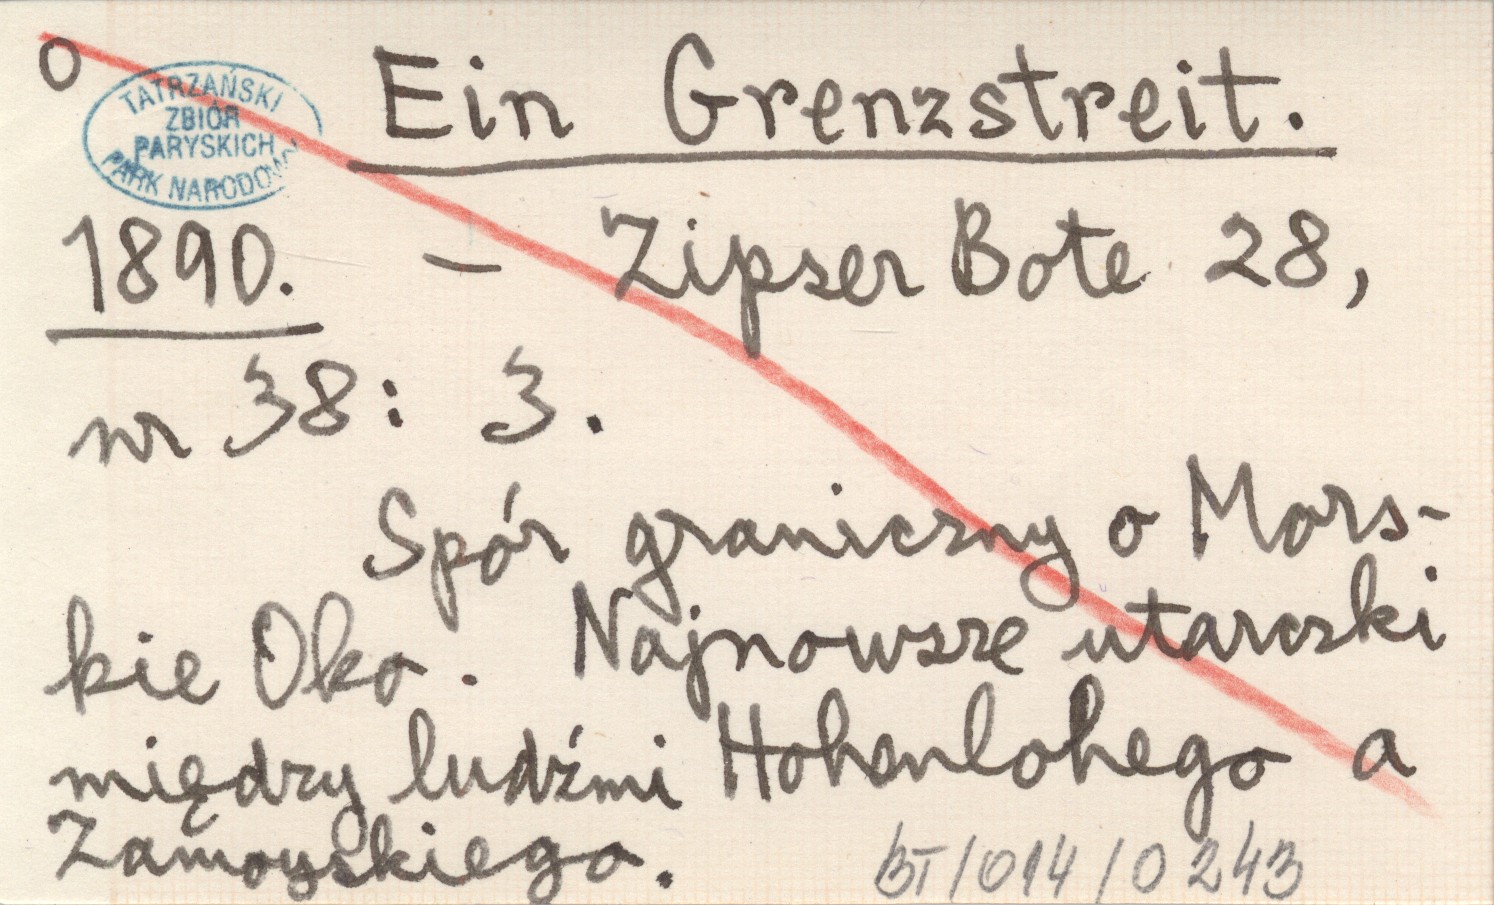 o
TATRZAŃSKI
ZBIÓR
PARYSKICH
PARK NARODOWY
Ein Grenzstreit.
1890. – Zipser Bote 28,
nr 38: 3.
Spór graniczny o Mors-
kie Oko. Najnowsze utarczki
między ludźmi Hohenlohego a
Zamoyskiego.
BT/014/0243